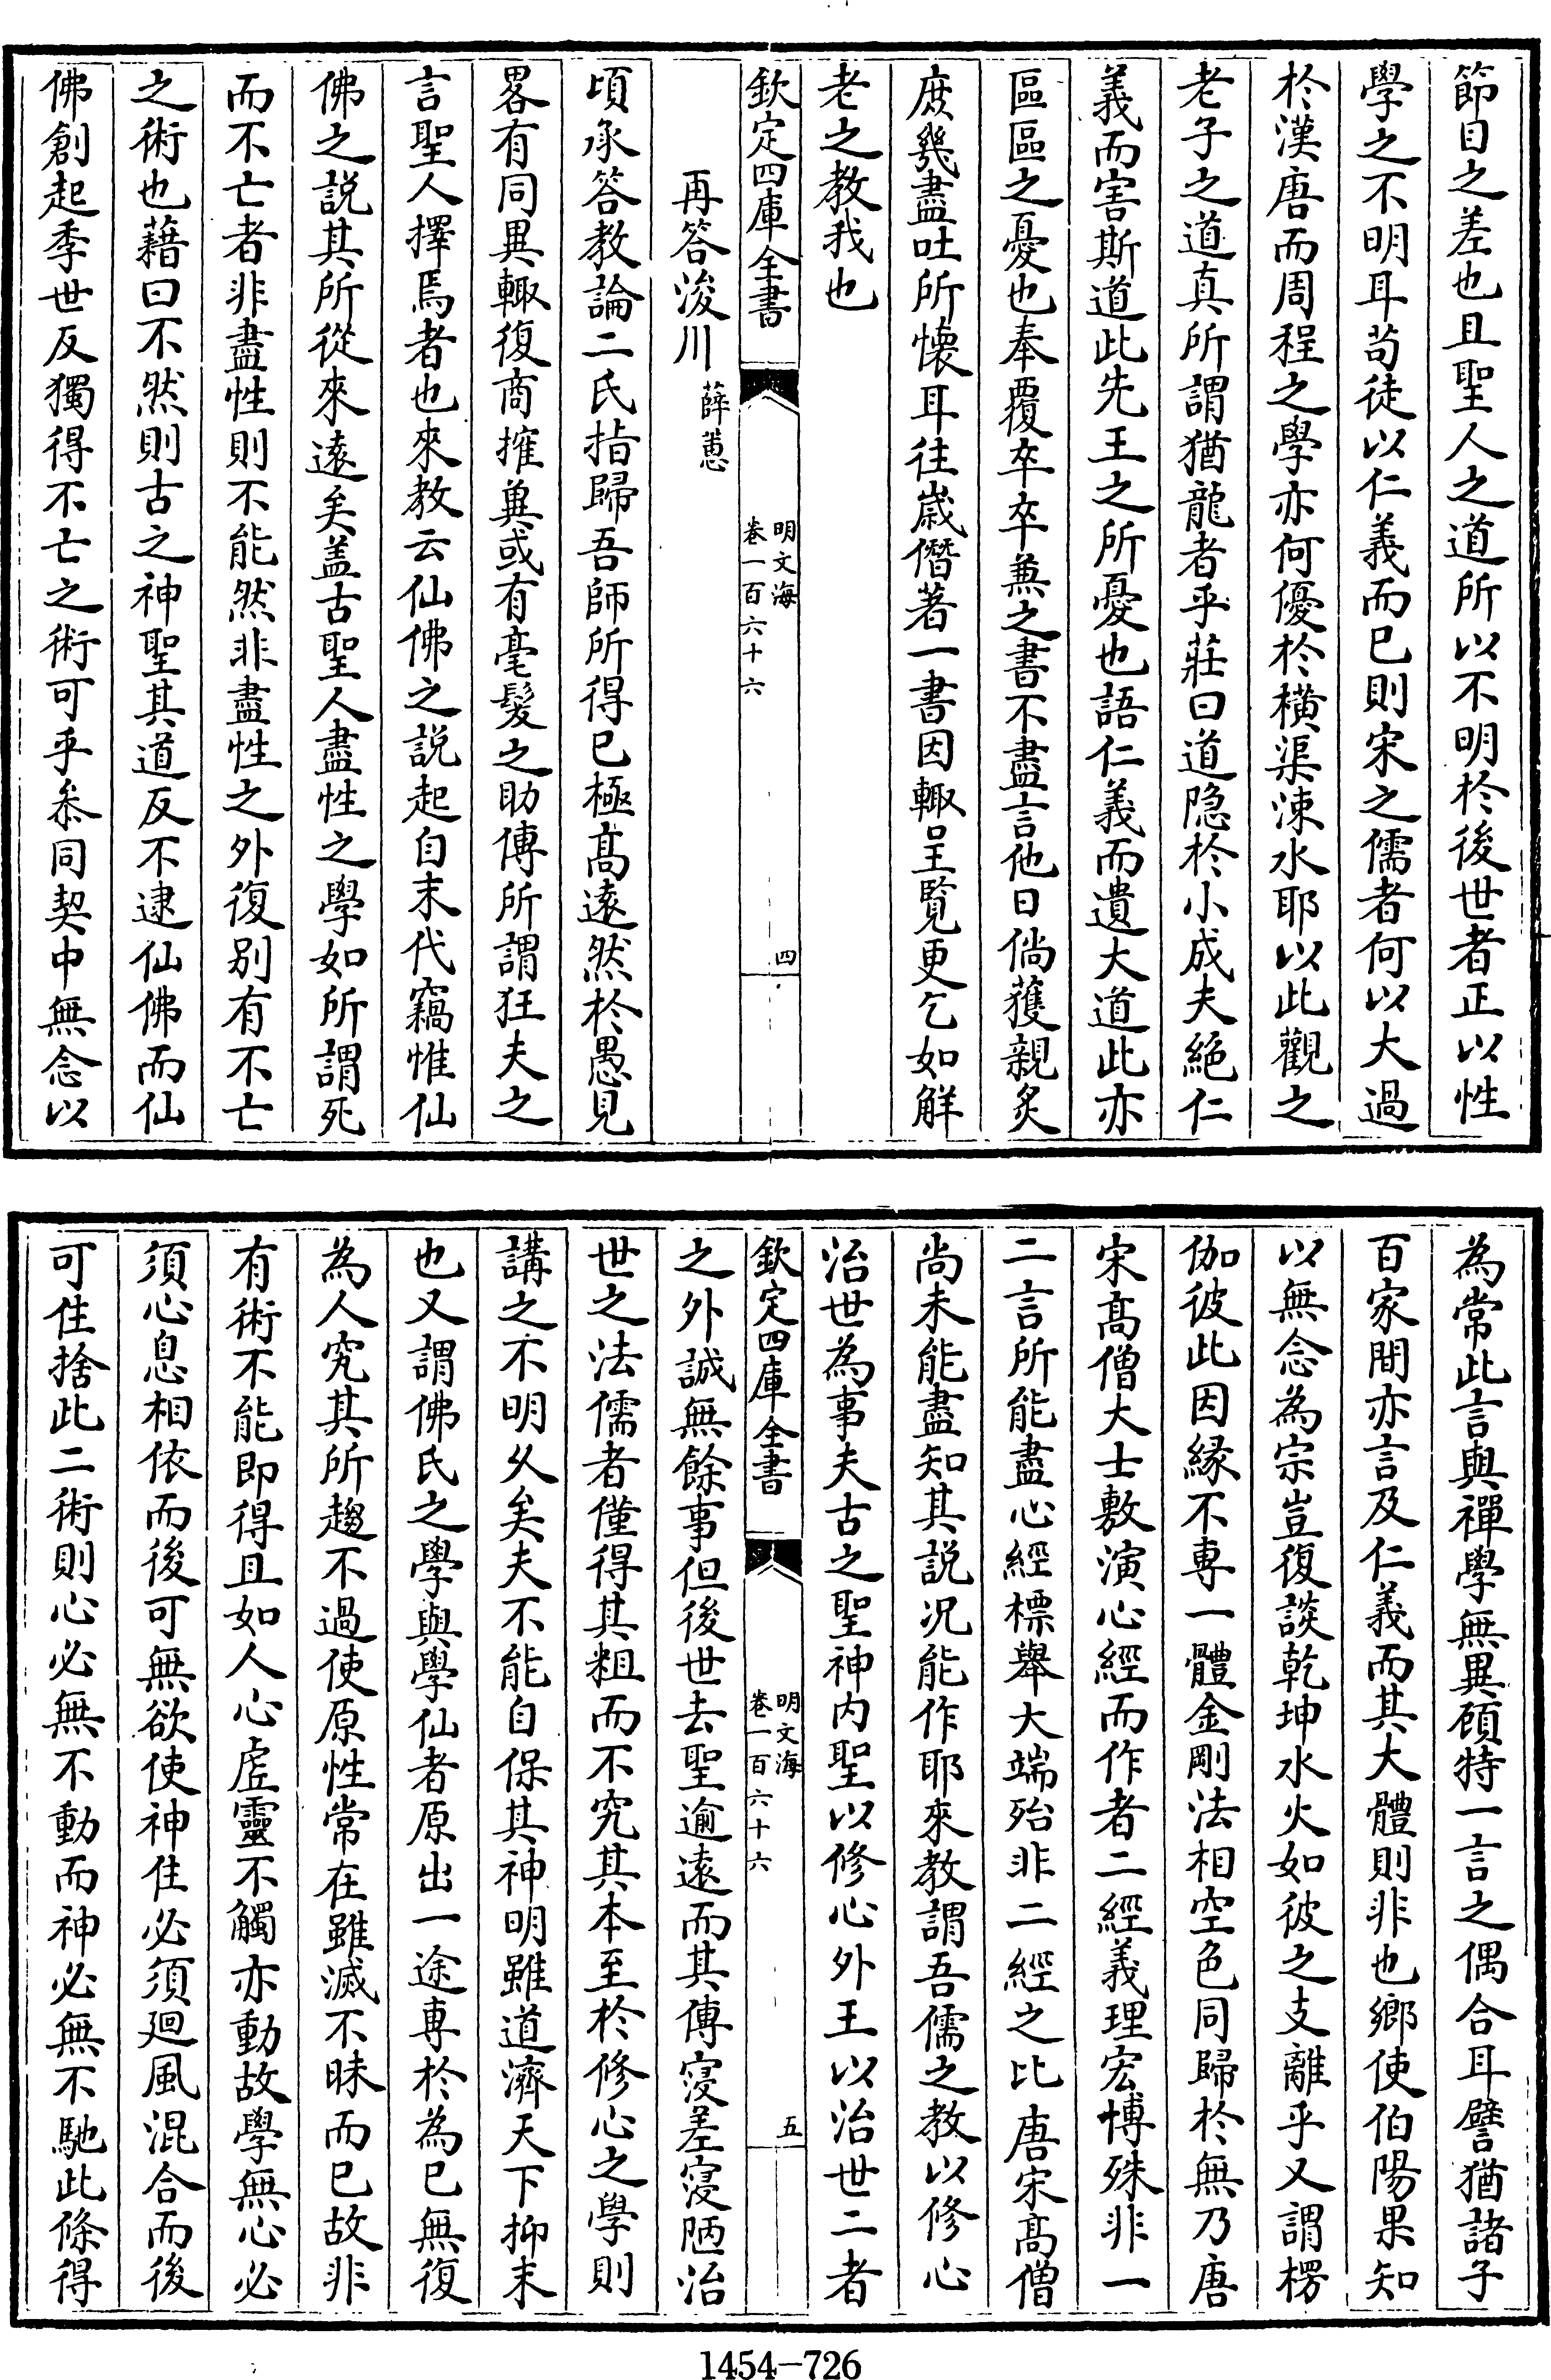 節目之差也且聖人之道所以不明於後世者正以性
學之不明耳苟徒以仁義而已則宋之儒者何以大過
於漢唐而周程之學亦何優於橫渠涑水耶以此觀之
老子之道真所謂猶龍者乎莊曰道隐於小成夫絶仁
義而害斯道此先王之所憂也語仁義而遺大道此亦
區區之憂也奉覆卒卒無之書不盡言他日倘獲親炙
庶幾盡吐所懐耳往嵗僭著一書因輙呈覧更乞如解
老之教我也
欽定四庫全書
明文海
卷一百六十六
四
再答浚川 薛蕙
頃承答教論二氏指歸吾師所得已極髙遠然於愚見
畧有同異輙復商搉冀或有毫髪之助傳所謂狂夫之
言聖人擇焉者也來教云仙佛之說起自末代竊惟仙
佛之說其所從來遠矣盖古聖人盡性之學如所謂死
而不亡者非盡性則不能然非盡性之外復别有不亡
之術也藉曰不然則古之神聖其道反不逮仙佛而仙
佛創起季世反獨得不亡之術可乎叅同契中無念以
為常此言與禪學無異顧特一言之偶合耳譬猶諸子
百家間亦言及仁義而其大體則非也鄉使伯陽果知
以無念為宗豈復談乾坤水火如彼之支離乎又謂楞
伽彼此因縁不専一體金剛法相空色同歸於無乃唐
宋髙僧大士敷演心經而作者二經義理宏博殊非一
二言所能盡心經標舉大端殆非二經之比唐宋髙僧
尚未能盡知其説况能作耶來教謂吾儒之教以修心
治世為事夫古之聖神内聖以修心外王以治世二者
欽定四庫全書
明文海
卷一百六十六
五
之外誠無餘事但後世去聖逾遠而其傳寖差寖陋治
世之法儒者僅得其粗而不究其本至於修心之學則
講之不明乆矣夫不能自保其神明雖道濟天下抑末
也又謂佛氏之學與學仙者原出一途専於為已無復
為人究其所趨不過使原性常在雖滅不昧而已故非
有術不能即得且如人心虚靈不觸亦動故學無心必
須心息相依而後可無欲使神住必須廻風混合而後
可住捨此二術則心必無不動而神必無不馳此條得
1454-726